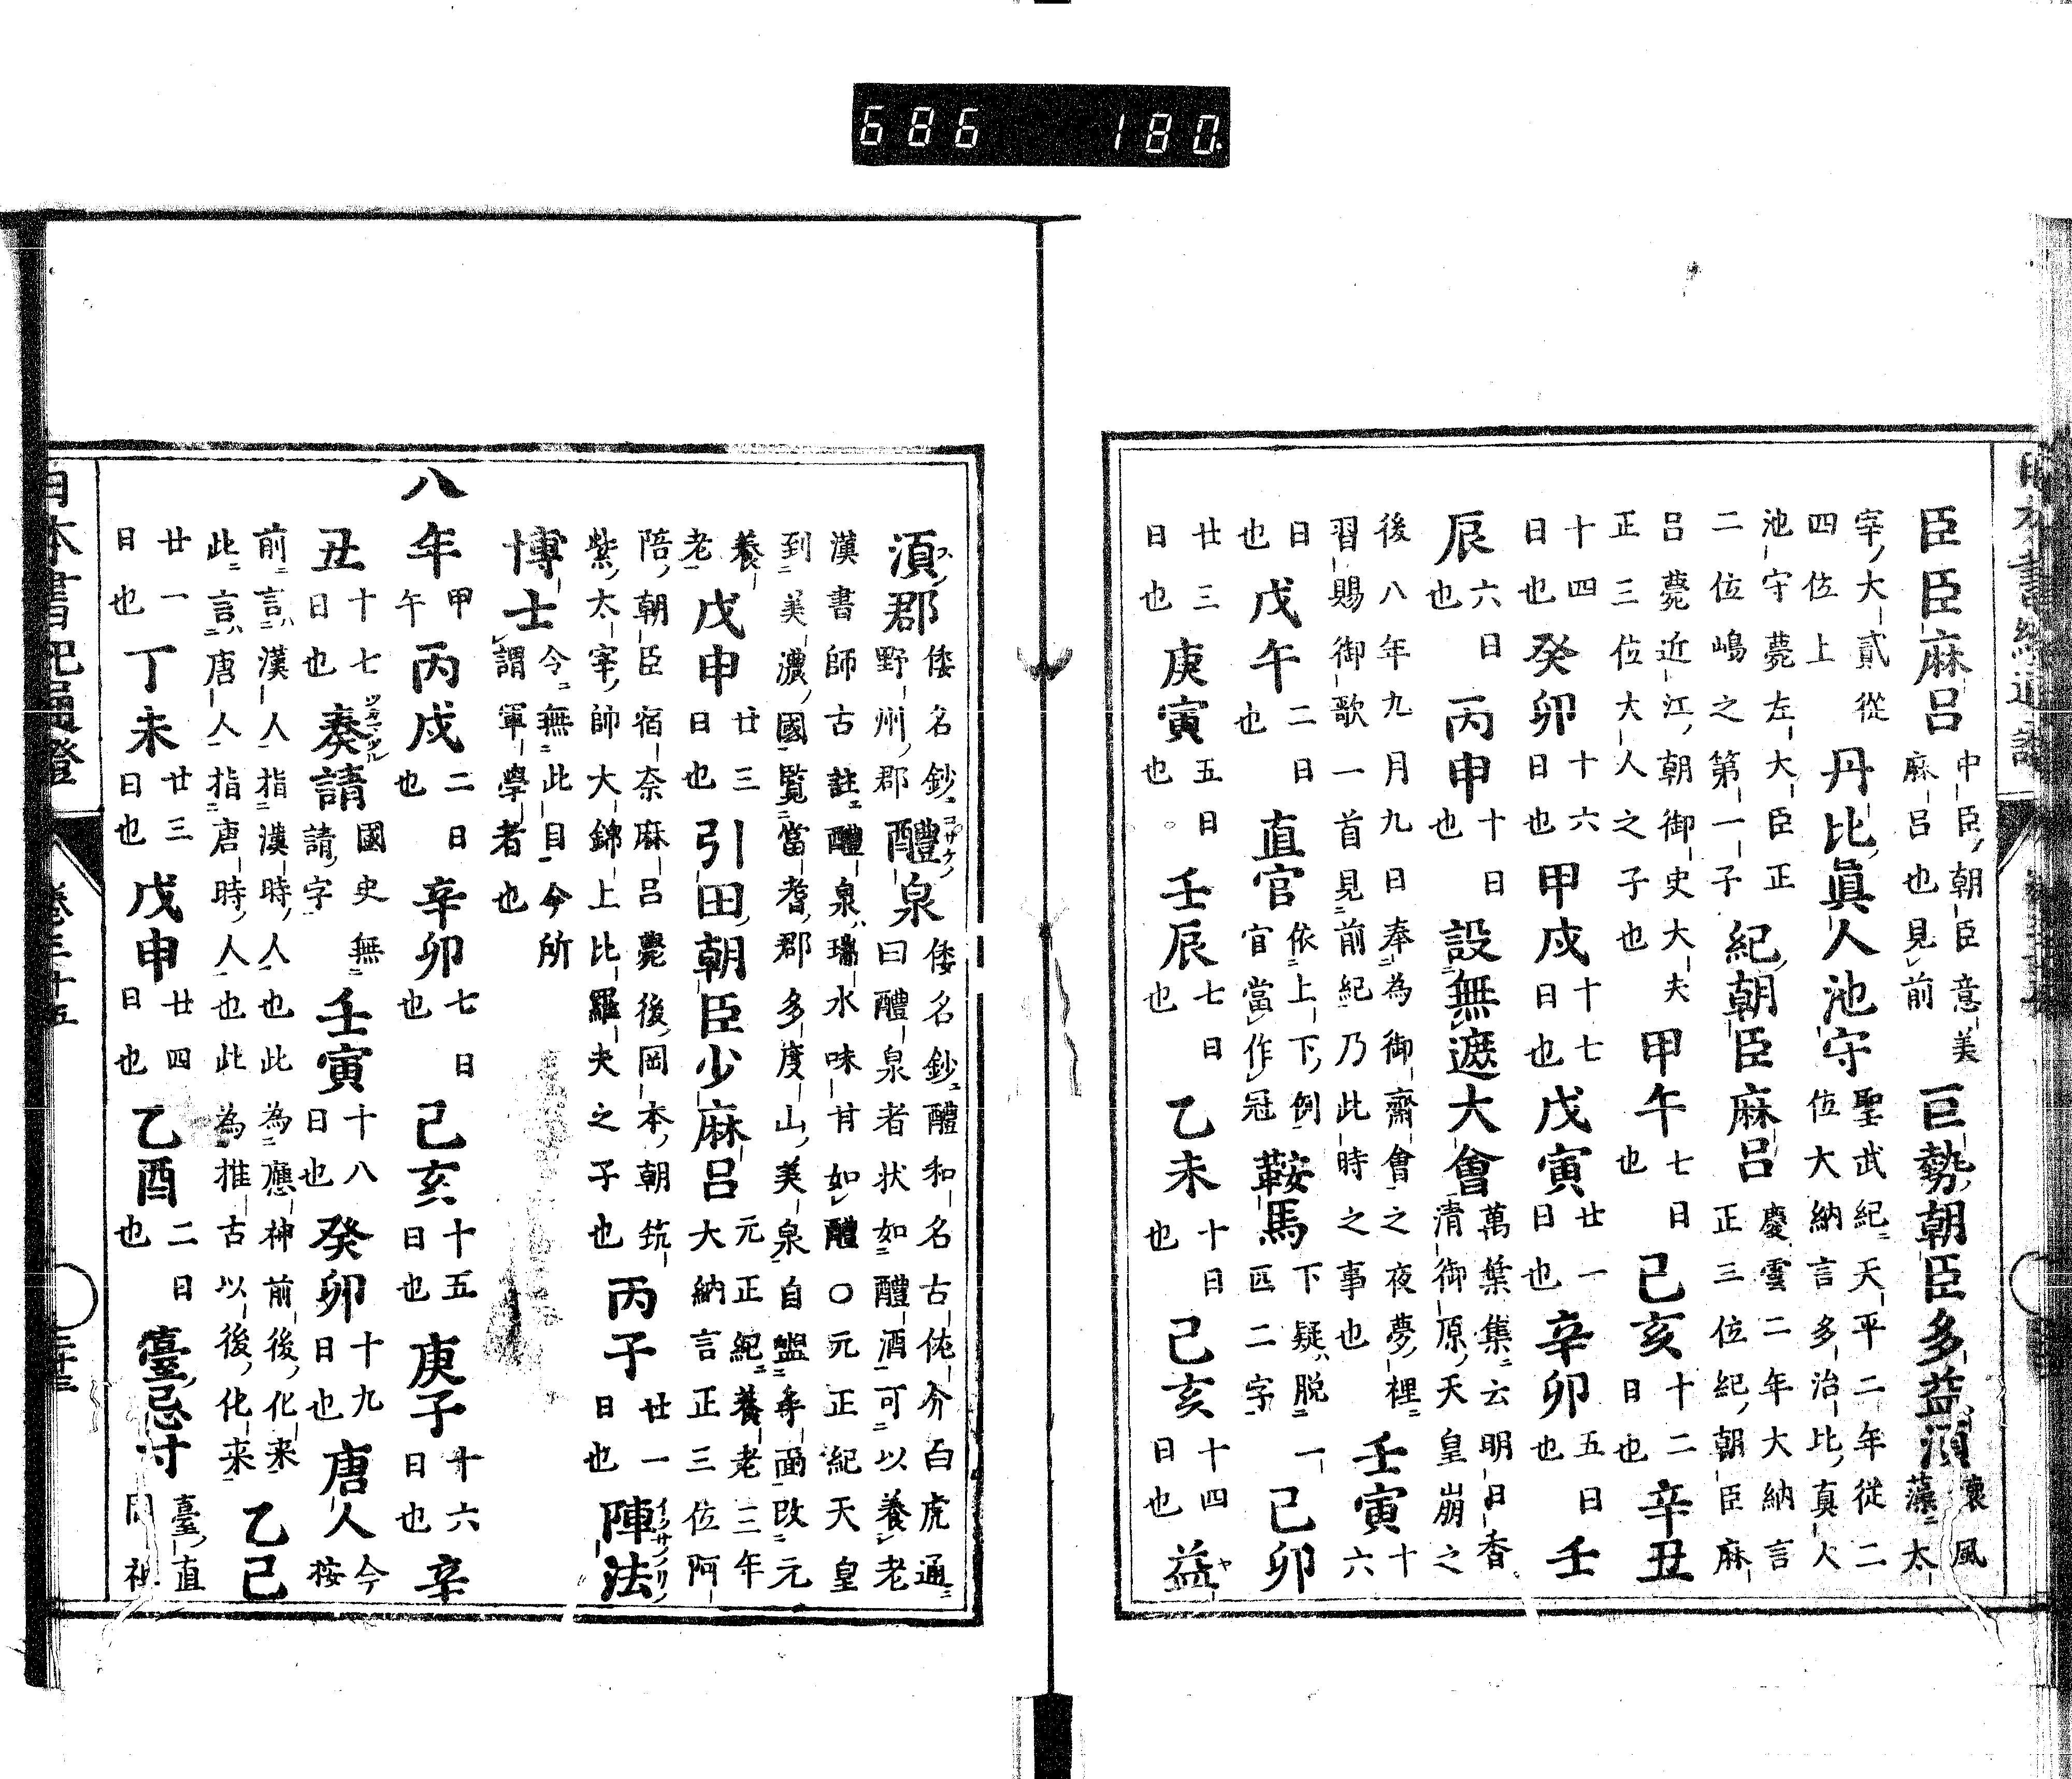 686 180.
臣臣麻呂 中臣朝臣意美麻呂也見前 巨勢朝臣多益須 懷風藻太
宰大貳從四位上 丹比眞人池守 聖武紀天平二年從二位大納言多治比真人
池守薨左大臣正二位嶋之第一子 紀朝臣麻呂 慶雲二年大納言正三位紀朝臣麻
呂薨近江朝御史大夫正三位大人之子也 甲午 七日也 己亥 十二日也 辛丑
十四日也 癸卯 十六日也 甲戌 十七日也 戊寅 廿一日也 辛卯 五日也 壬
辰 六日也 丙申 十日也 設無遮大會 萬葉集云明日香清御原天皇崩之
後八年九月九日奉為御齋會之夜夢裡習賜御歌一首見前紀乃此時之事也 壬寅 十六
日也 戊午 二日也 直官 依上下例官當作冠 鞍馬 下疑脱一匹二字 己卯
廿三日也 庚寅 五日也 壬辰 七日也 乙未 十日也 己亥 十四日也 益
須郡 倭名鈔野州郡 醴泉 倭名鈔醴和名古佐介白虎通曰醴泉者状如醴酒可以養老
漢書師古註醴泉瑞水味甘如醴○元正紀天皇到美濃國覧當耆郡多度山美泉自盥手面改元
養老 戊申 廿三日也 引田朝臣少麻呂 元正紀養老三年大納言正三位阿
陪朝臣宿奈麻呂薨後岡本朝筑紫太宰帥大錦上比羅夫之子也 丙子 廿一日也 陣法
博士 今無此目今所謂軍學者也
八年 甲午 丙戌 二日也 辛卯 七日也 己亥 十五日也 庚子 十六日也 辛
丑 十七日也 奏請 國史無請字 壬寅 十八日也 癸卯 十九日也 唐人 今按
前言漢人指漢時人也此為應神前後化来此言唐人指唐時人也此為推古以後化来 乙己
廿一日也 丁未 廿三日也 戊申 廿四日也 乙酉 二日也 臺忌寸 臺直
日本書紀通證 卷三十五